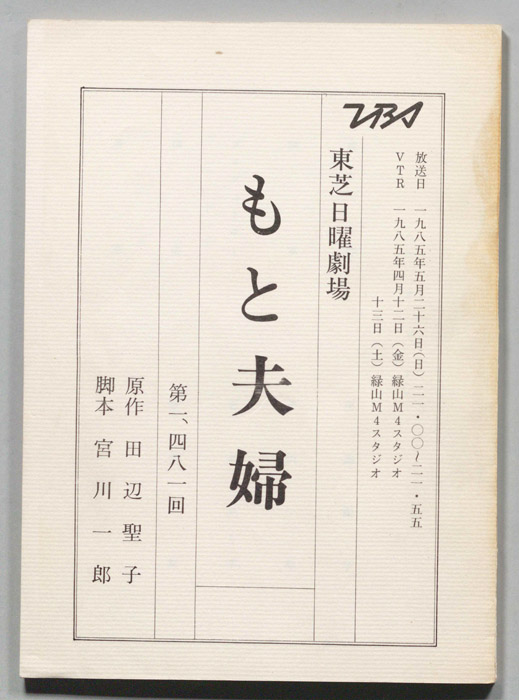 TBS
放送日 一九八五年五月二十六日(日) 二一・〇〇〜二一・五五
VTR 一九八五年四月十二日(金) 緑山M4スタジオ
十三日(土) 緑山M4スタジオ
東芝日曜劇場
もと夫婦
第一、四八一回
原作 田辺聖子
脚本 宮川一郎